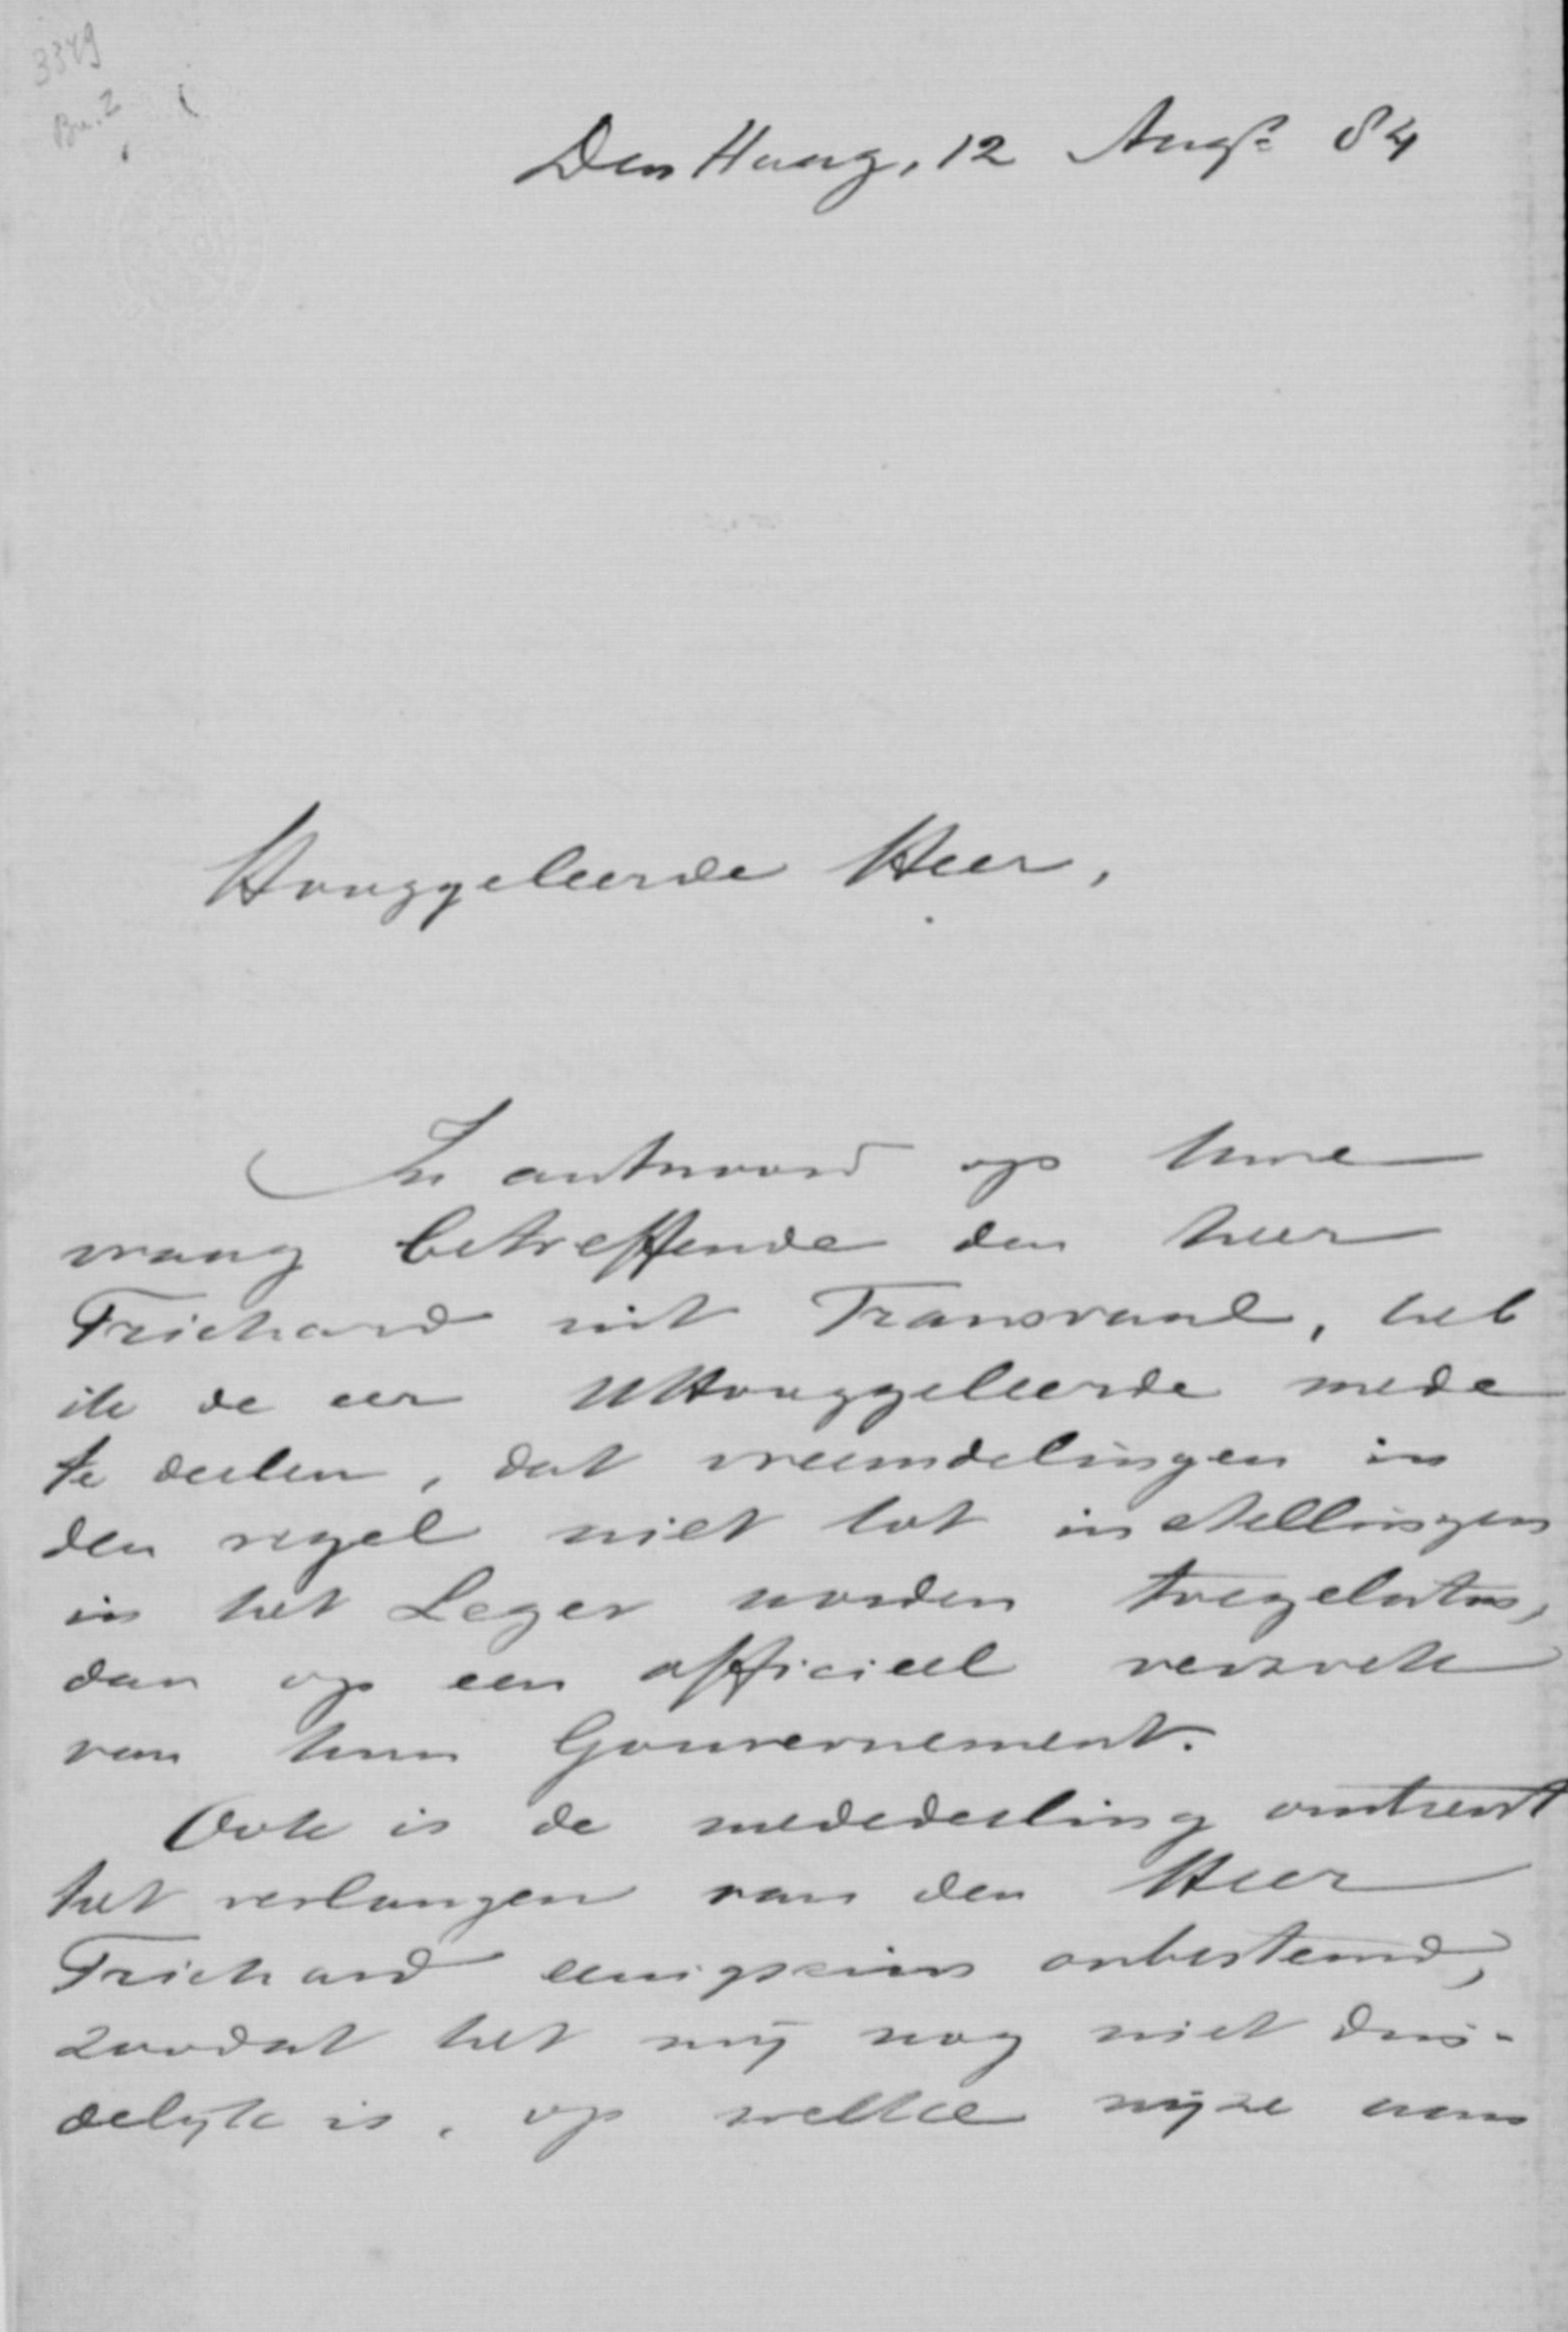 3349
Br. 2
Den Haag, 12 Augs 84
Hooggeleerde Heer,
In antwoord op Uwe
vraag betreffende den heer
Trichard uit Transvaal, heb
ik de eer UHooggeleerde mede
te deelen, dat vreemdelingen in
den regel niet tot instellingen
in het Leger worden toegelaten,
dan op een officieel verzoek
van hun Gouvernement.
Ook is de mededeeling omtrent
het verlangen van den Heer
Trichard eenigszins onbestemd,
zoodat het mij nog niet dui-
delijk is, op welke wijze aan